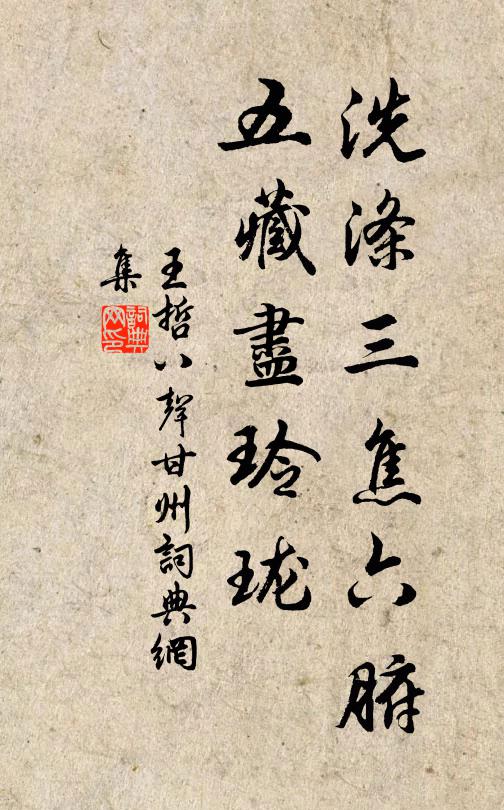 洗滌三焦六腑
五藏盡玲瓏
王哲八聲甘州詞典網
集
詞典
网印